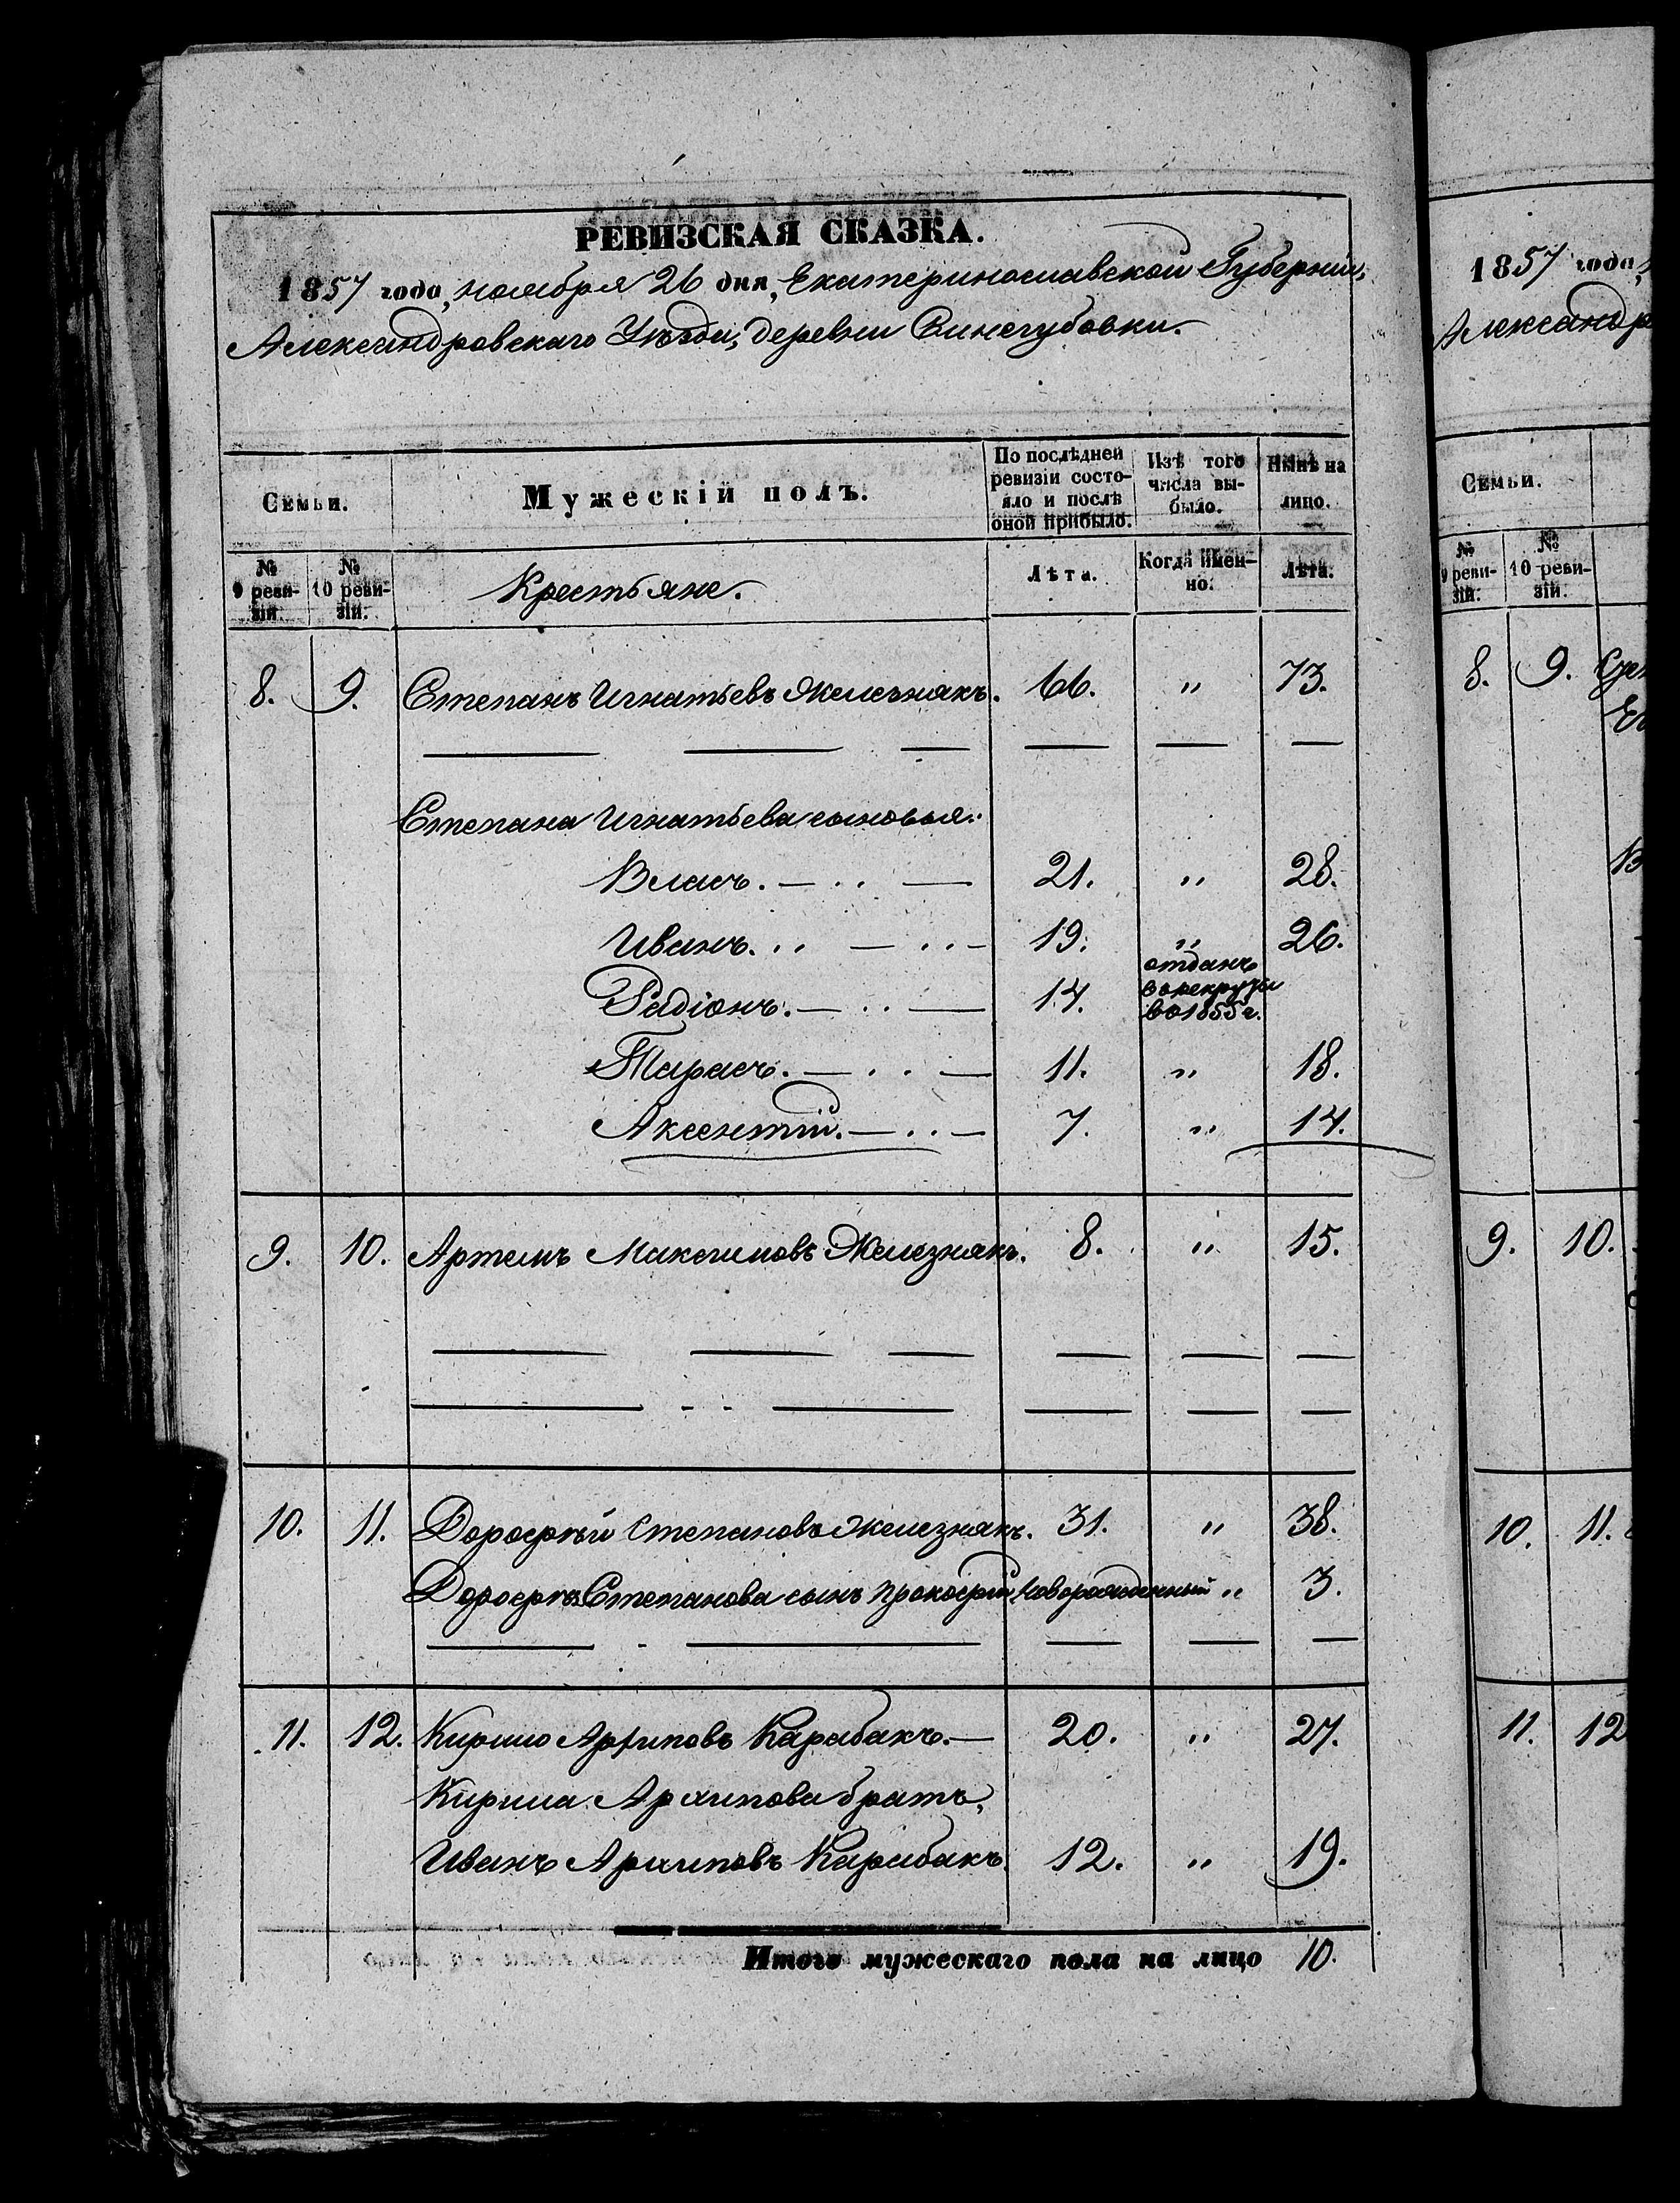 РЕВИЗСКАЯ СКАЗКА.
1857 года, ноября 26 дня, Екатеринославской Губернии,
Александровскаго Уѣзда, деревни Винегубовки.
Семьи.
Мужескій полъ.
По послѣдней ревизіи состояло и послѣ оной прибыло.
Изъ того числа выбыло.
Нынѣ на лицо.
№ 9 ревизіи.
№ 10 ревизіи.
Крестьяне.
Лѣта.
Когда именно.
Лѣта.
8. 9. Степанъ Игнатьевъ Железнякъ. 66. " 73.
Степана Игнатьева сыновья:
Власъ. 21. " 28.
Иванъ. 19. " 26.
Радіонъ. 14. отданъ
в рекруты
въ 1855 г.
Тарасъ. 11. " 18.
Аксентій. 7. " 14.
9. 10. Артемъ Максимовъ Железнякъ. 8. " 15.
10. 11. Дорофѣй Степановъ Железнякъ. 31. " 38.
Дорофѣя Степанова сынъ Прокофій новорожденный " 3.
11. 12. Кирило Архиповъ Карабакъ. 20. " 27.
Кирила Архипова братъ,
Иванъ Архиповъ Карабакъ 12. " 19.
Итого мужескаго пола на лицо 10.
1857 года,
Александр
Семьи.
№ 9 ревизіи.
№ 10 ревизіи.
8. 9.
9. 10.
10. 11.
11. 12